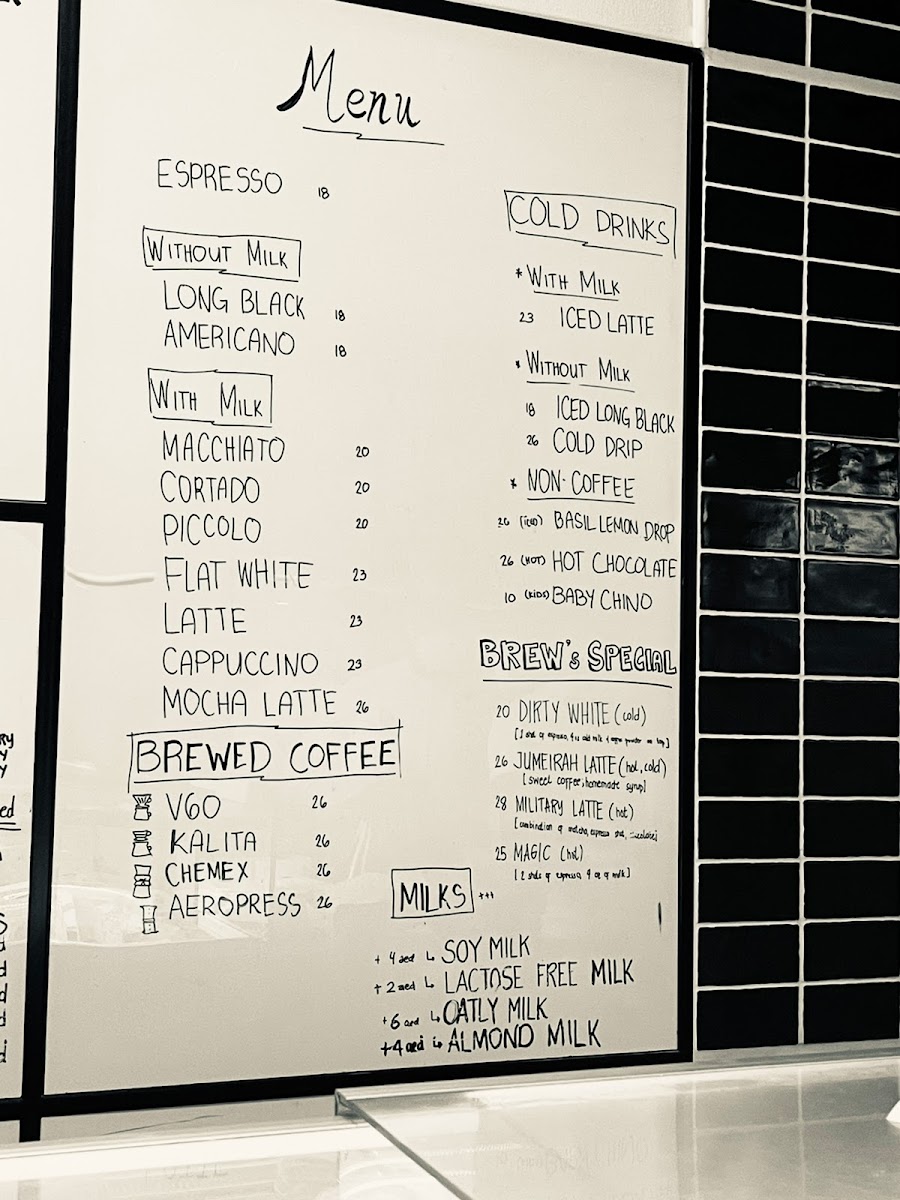 Menu
ESPRESSO 18
WITHOUT MILK
LONG BLACK 18
AMERICANO 18
WITH MILK
MACCHIATO 20
CORTADO 20
PICCOLO 20
FLAT WHITE 23
LATTE 23
CAPPUCCINO 23
MOCHA LATTE 26
BREWED COFFEE
V60 26
KALITA 26
CHEMEX 26
AEROPRESS 26
COLD DRINKS
* WITH MILK
23 ICED LATTE
* WITHOUT MILK
18 ICED LONG BLACK
26 COLD DRIP
* NON-COFFEE
26 (ICED) BASIL LEMON DROP
26 (HOT) HOT CHOCOLATE
10 (KIDS) BABY CHINO
BREW'S SPECIAL
20 DIRTY WHITE (cold)
26 JUMEIRAH LATTE (hot, cold)
[sweet coffee, homemade syrup]
28 MILITARY LATTE (hot)
[combination of matcha, espresso shot,
25 MAGIC (hot)
[2 shots of espresso, 4 oz of milk]
MILKS +++
+ 4 aed ↳ SOY MILK
+ 2 aed ↳ LACTOSE FREE MILK
+ 6 aed ↳ OATLY MILK
+ 4 aed ↳ ALMOND MILK